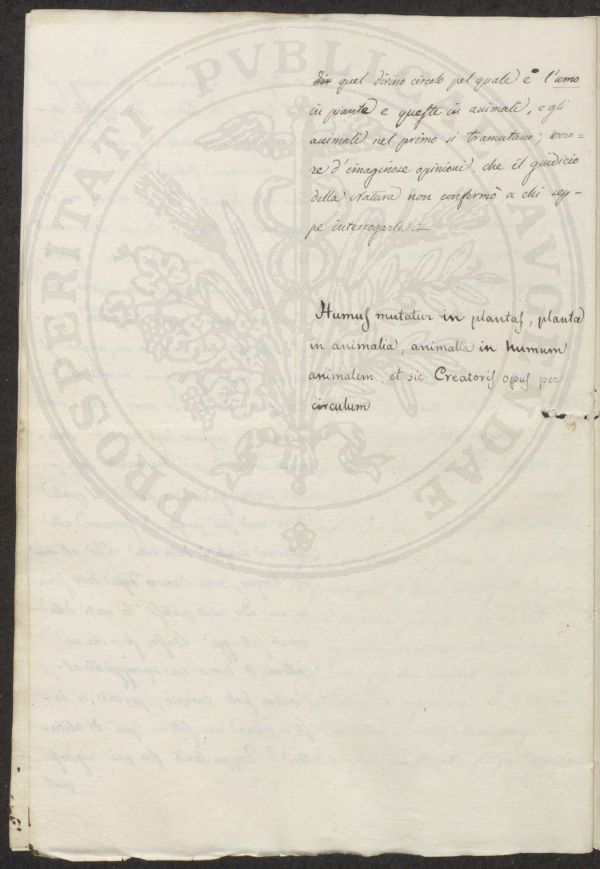 PROSPERITATI PVBLICAE AVGENDAE
div quel divino circolo pel quale è l'umo
in piante e queste in animali, e gli
animali nel primo si tramutano; erro=
re d'imaginose opinioni, che il giudicio
della Natura non confermò a chi sep=
pe interrogarla.—
Humus mutatur in plantas, planta
in animalia, animalia in humum
animalem, et sic Creatoris opus per
circulum